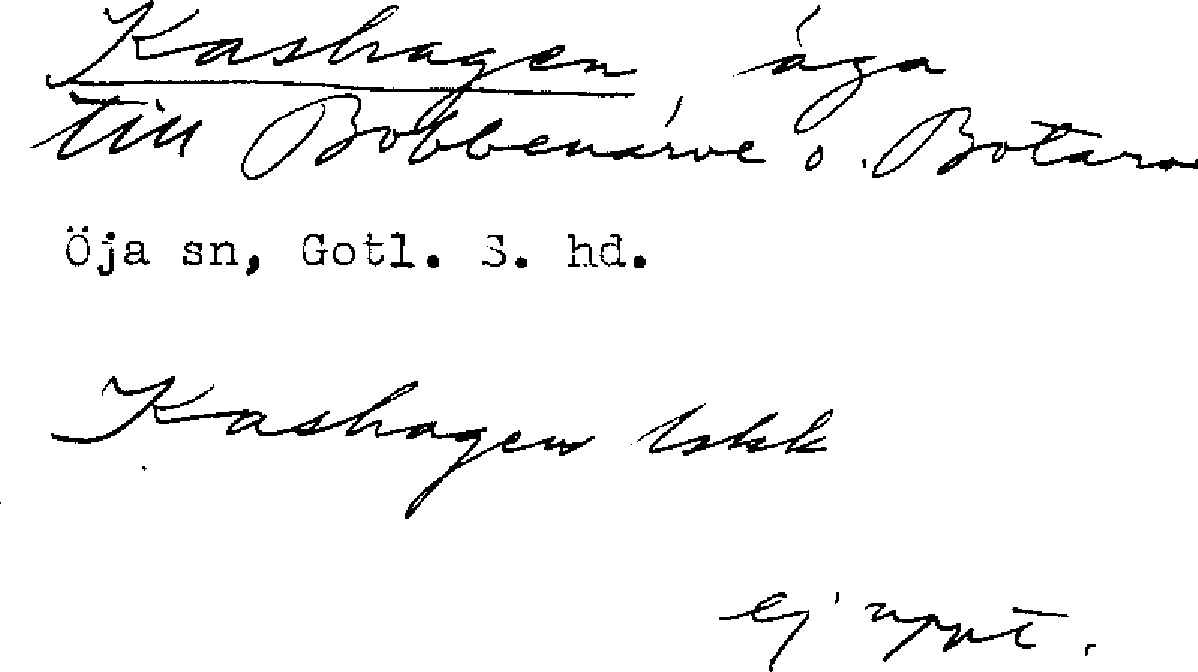 Kashagen äga
till Bobbenarve o. Botarve
Öja sn, Gotl. S. hd.
Kashagen lskk
ej uppt.